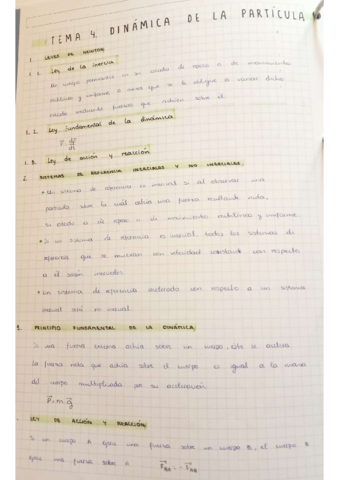 TEMA 4. DINÁMICA DE LA PARTÍCULA
1. LEYES DE NEWTON
1. 1. Ley de la inercia
Un cuerpo permanece en su estado de reposo o de movimiento
rectilíneo y uniforme a menos que se le obligue a variar dicho
estado mediante fuerzas que actúan sobre él.
1. 2. Ley fundamental de la dinámica
1. 3. Ley de acción y reacción
2. SISTEMAS DE REFERENCIA INERCIALES Y NO INERCIALES
• Un sistema de referencia es inercial si al observar una
partícula sobre la cual actúa una fuerza resultante nula,
su estado es de reposo o de movimiento rectilíneo y uniforme.
• Si un sistema de referencia es inercial, todos los sistemas de
referencia que se muevan con velocidad constante con respecto
a él serán inerciales.
• Un sistema de referencia acelerado con respecto a un sistema
inercial será no inercial.
3. PRINCIPIO FUNDAMENTAL DE LA DINÁMICA
Si una fuerza externa actúa sobre un cuerpo, este se acelera.
La fuerza neta que actúa sobre el cuerpo es igual a la masa
del cuerpo multiplicada por su aceleración
LEY DE ACCIÓN Y REACCIÓN
Si un cuerpo A ejerce una fuerza sobre un cuerpo B, el cuerpo B
ejerce una fuerza sobre A